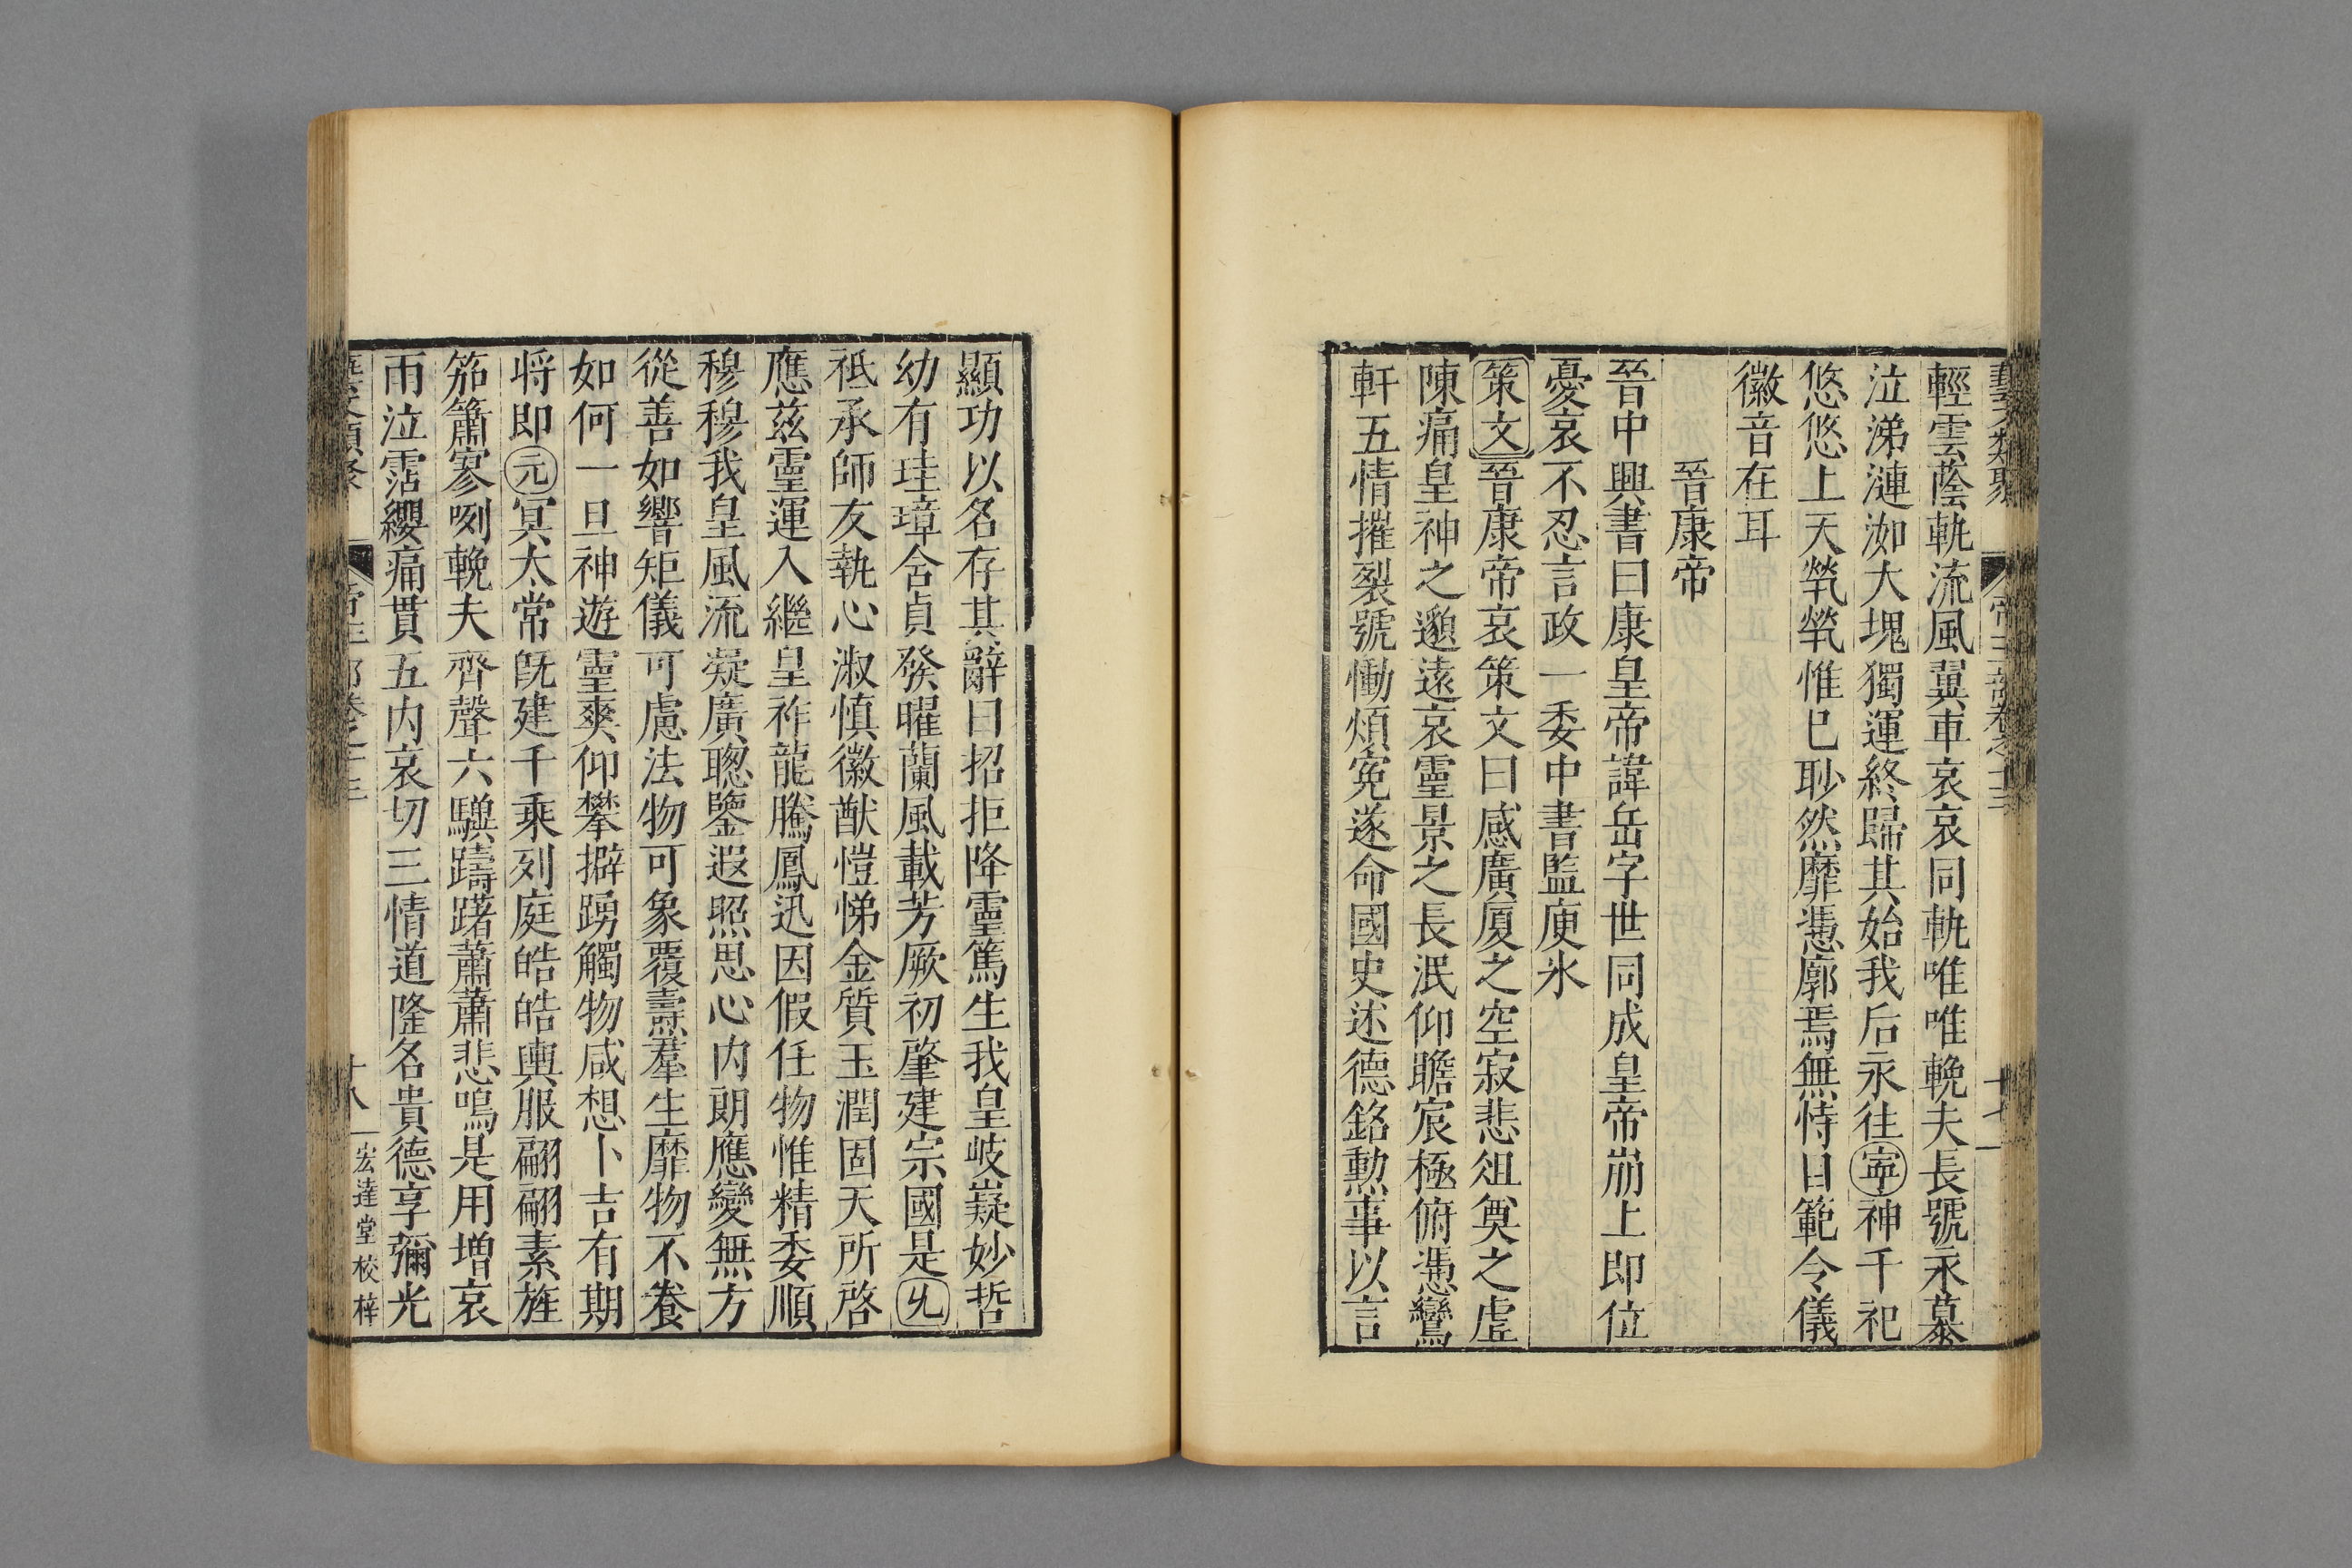 藝文類聚 帝王部卷之十三 十七
輕雲蔭軌流風翼車哀哀同軌唯唯輓夫長號永慕
泣涕漣洳大塊獨運終歸其始我后永往寧神千祀
悠悠上天煢煢惟已眇然靡憑廓焉無恃日範令儀
徽音在耳
晉康帝
晉中興書曰康皇帝諱岳字世同成皇帝崩上即位
憂哀不忍言政一委中書監庾氷
策文晉康帝哀策文曰感廣厦之空寂悲俎奠之虛
陳痛皇神之邈遠哀靈景之長泯仰瞻宸極俯憑鸞
軒五情摧裂號慟煩寃遂命國史述德銘勲事以言
顯功以名存其辭曰招拒降靈篤生我皇岐嶷妙哲
幼有珪璋含貞發曜蘭風載芳厥初肇建宗國是尤
祗承師友執心淑慎徽猷愷悌金質玉潤固天所啓
應茲靈運入繼皇祚龍騰鳳迅因假任物惟精委順
穆穆我皇風流凝廣聰鑒遐照思心內朗應變無方
從善如響矩儀可慮法物可象覆燾羣生靡物不養
如何一旦神遊靈爽仰攀擗踴觸物咸想卜吉有期
将即元冥太常旣建千乘列庭皓皓輿服翩翩素旌
笳簫寥唳輓夫齊聲六驥躊躇蕭蕭悲鳴是用增哀
雨泣霑纓痛貫五內哀切三情道隆名貴德享彌光
藝文類聚 帝王部卷之十三 十八 宏達堂校梓